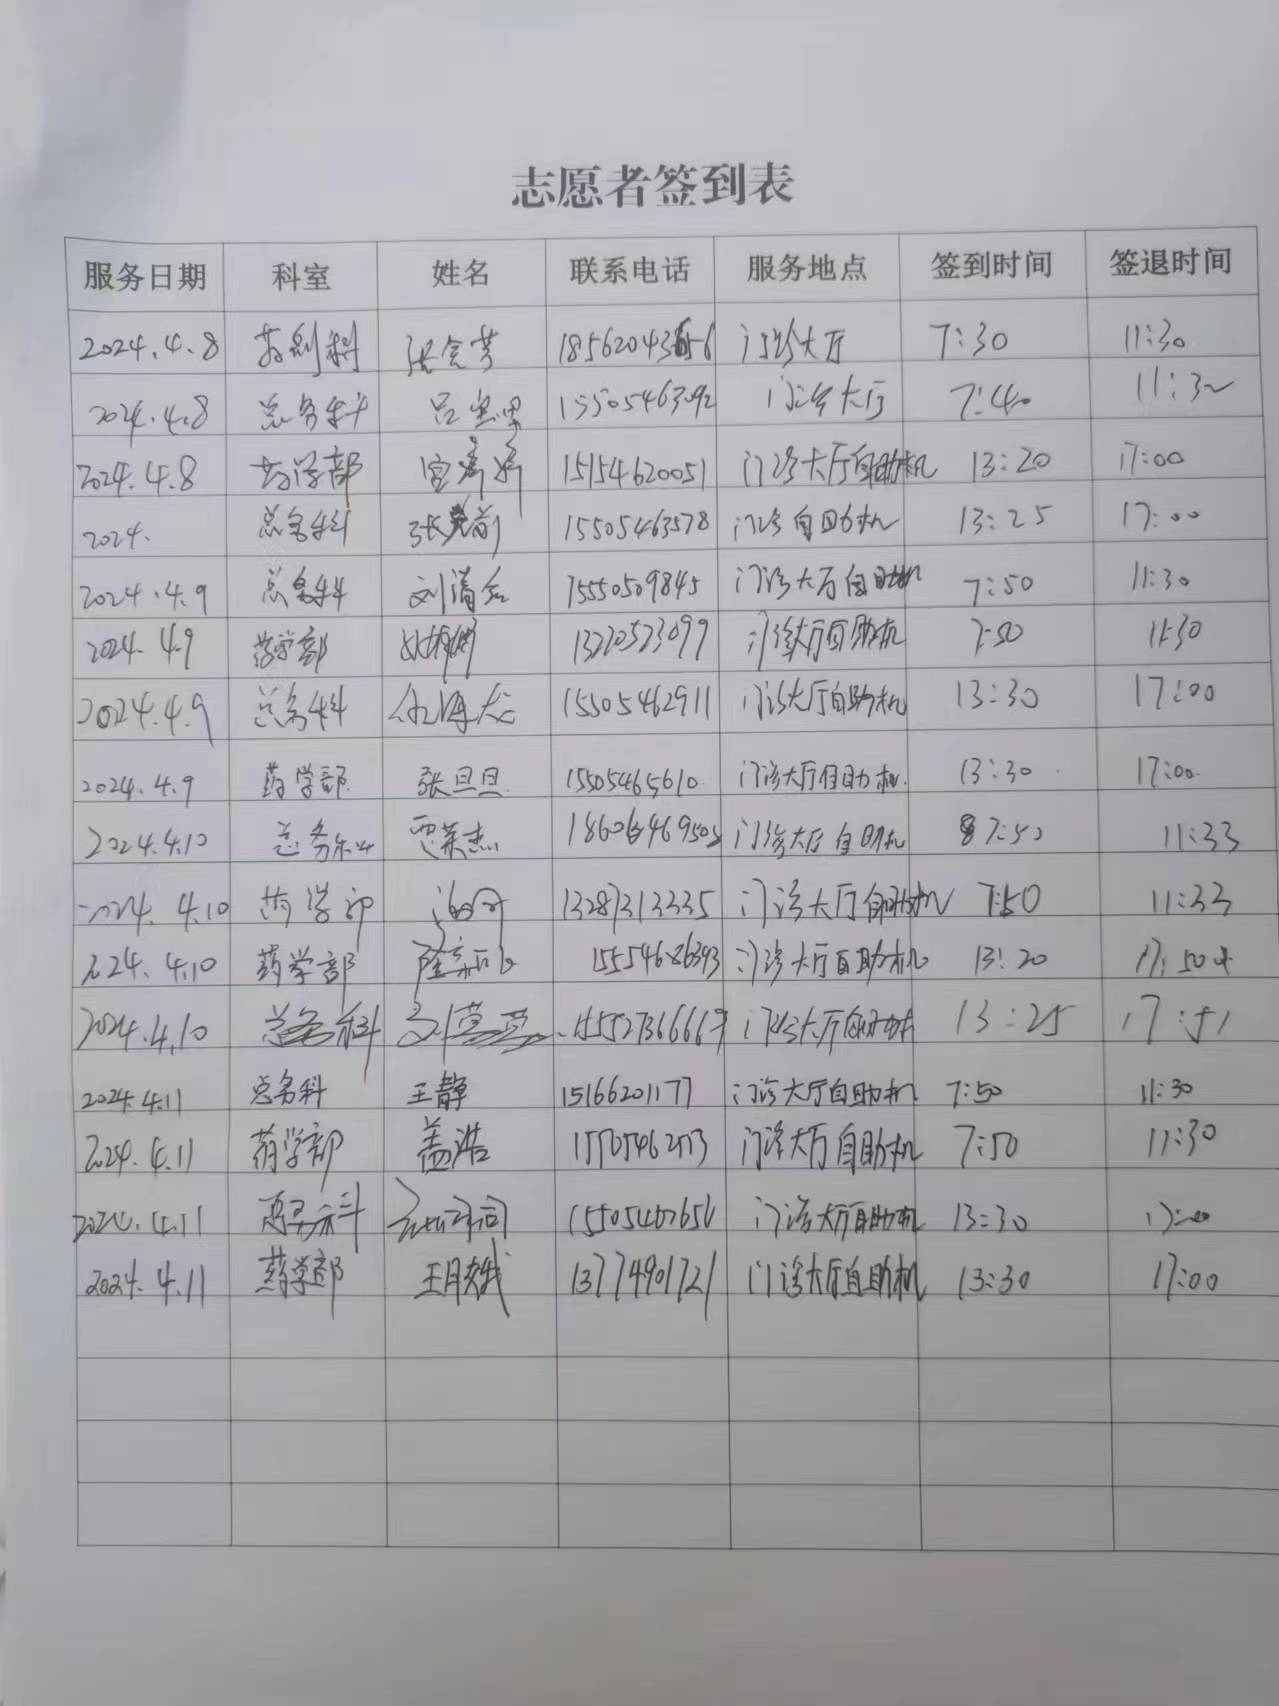 志愿者签到表
服务日期 科室 姓名 联系电话 服务地点 签到时间 签退时间
2024.4.8 药剂科 张会芳 门诊大厅 7:30 11:30
2024.4.8 总务科 15505463092 门诊大厅 7:40 11:32
2024.4.8 药学部 15154620051 门诊大厅自助机 13:20 17:00
2024. 总务科 15505463578 门诊自助机 13:25 17:00
2024.4.9 总务科 15550509845 门诊大厅自助机 7:50 11:30
2024.4.9 药学部 13210523099 门诊大厅自助机 7:50 11:30
2024.4.9 总务科 15505462911 门诊大厅自助机 13:30 17:00
2024.4.9 药学部 张旦旦 15505465610 门诊大厅自助机 13:30 17:00
2024.4.10 总务科 贾荣杰 门诊大厅自助机 7:50 11:33
2024.4.10 药学部 13287313335 门诊大厅自助机 7:50 11:33
2024.4.10 药学部 15554686393 门诊大厅自助机 13:20
2024.4.10 总务科 门诊大厅自助机 13:25 17:51
2024.4.11 总务科 王静 15166201177 门诊大厅自助机 7:50 11:30
2024.4.11 药学部 盖浩 门诊大厅自助机 7:50 11:30
2024.4.11 总务科 门诊大厅自助机 13:30 17:00
2024.4.11 药学部 王月娥 13774901721 门诊大厅自助机 13:30 17:00